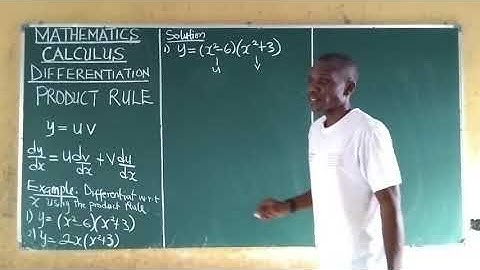 MATHEMATICS
CALCULUS
DIFFERENTIATION
PRODUCT RULE
y = uv
dy/dx = u dv/dx + v du/dx
Example: Differentiat w.r.t
x using the product rule
1) y = (x²-6)(x²+3)
2) y = 2x(x²+3)
Solution
1) y = (x²-6)(x²+3)
u v